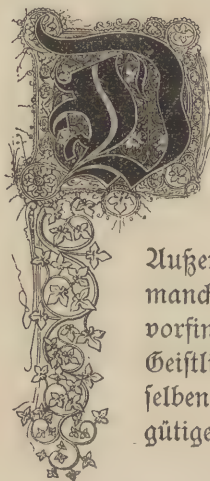 D
Außer
manch
vorfin
Geistl
selben
gütige